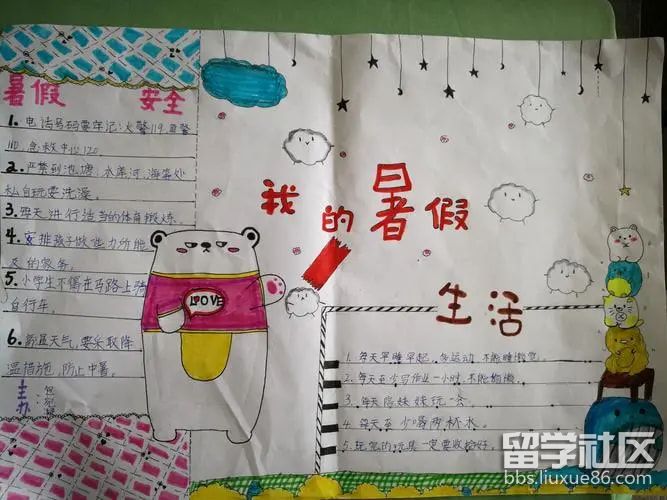 暑假 安全
1. 电话号码要牢记:火警119,匪警
110 急救中心120
2. 严禁到池塘,水库河,海等处
私自玩耍洗澡。
3. 每天进行适当的体育锻炼.
4. 安排孩子做些力所能
及的家务。
5. 小学生不得在马路上骑
自行车.
6. 防显天气,要采取降
温措施,防止中暑.
主
办
LOVE
我的暑假
生活
1. 每天早睡早起。多运动,不能睡懒觉。
2. 每天至少写作业一小时,不能偷懒.
3. 每天陪妹妹玩一会
4. 每天至少喝两杯水。
5. 玩完的玩具一定要收拾好。
留学社区
bbs.liuxue86.com